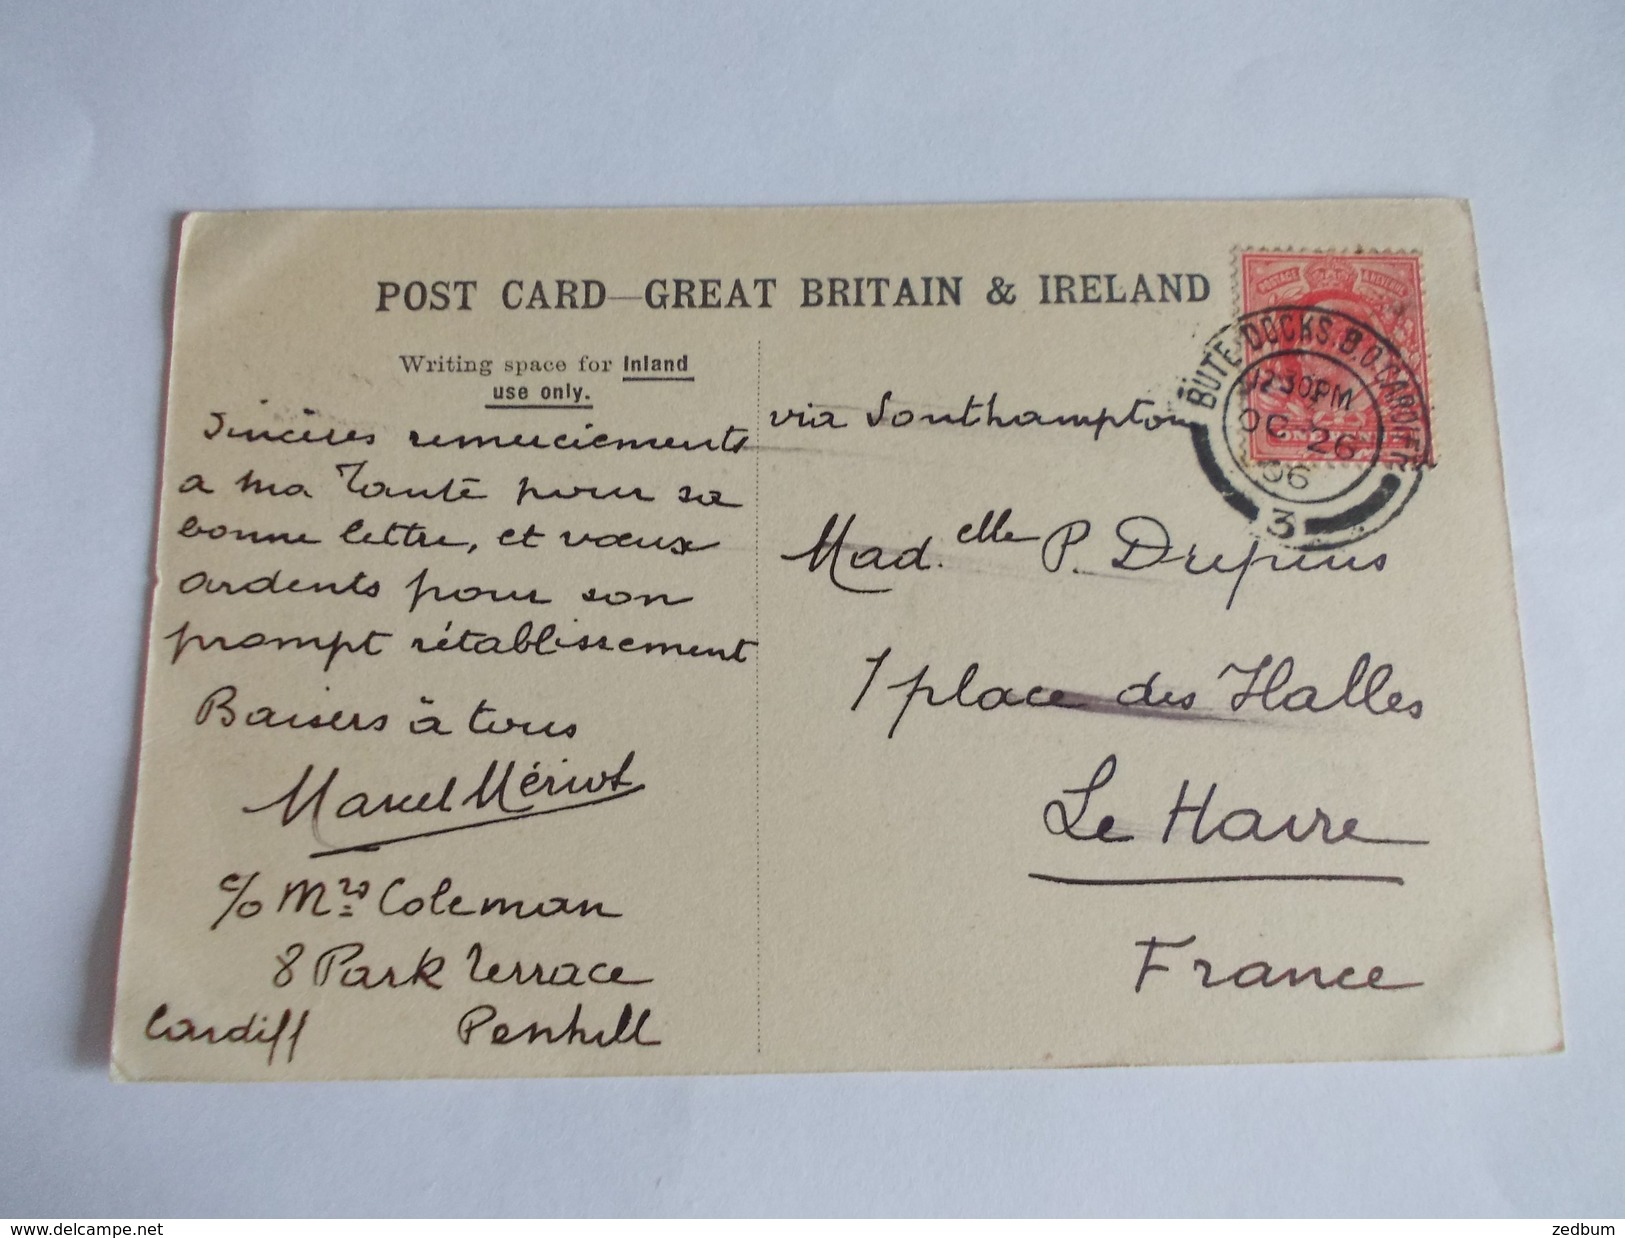 POST CARD—GREAT BRITAIN & IRELAND
Writing space for Inland
use only.
Sincères remerciements
a ma Tante pour sa
bonne lettre, et vœux
ardents pour son
prompt rétablissement
Baisers à tous
Marcel Mériot
c/o Mrs Coleman
8 Park Terrace
Cardiff Penhill
via Southampton
Mad.elle P.
1 place des Halles
Le Havre
France
POSTAGE REVENUE
BUTE DOCKS. B.O. CARDIFF
12 30PM
OC 26
06
3
delcampe.net
zedbum